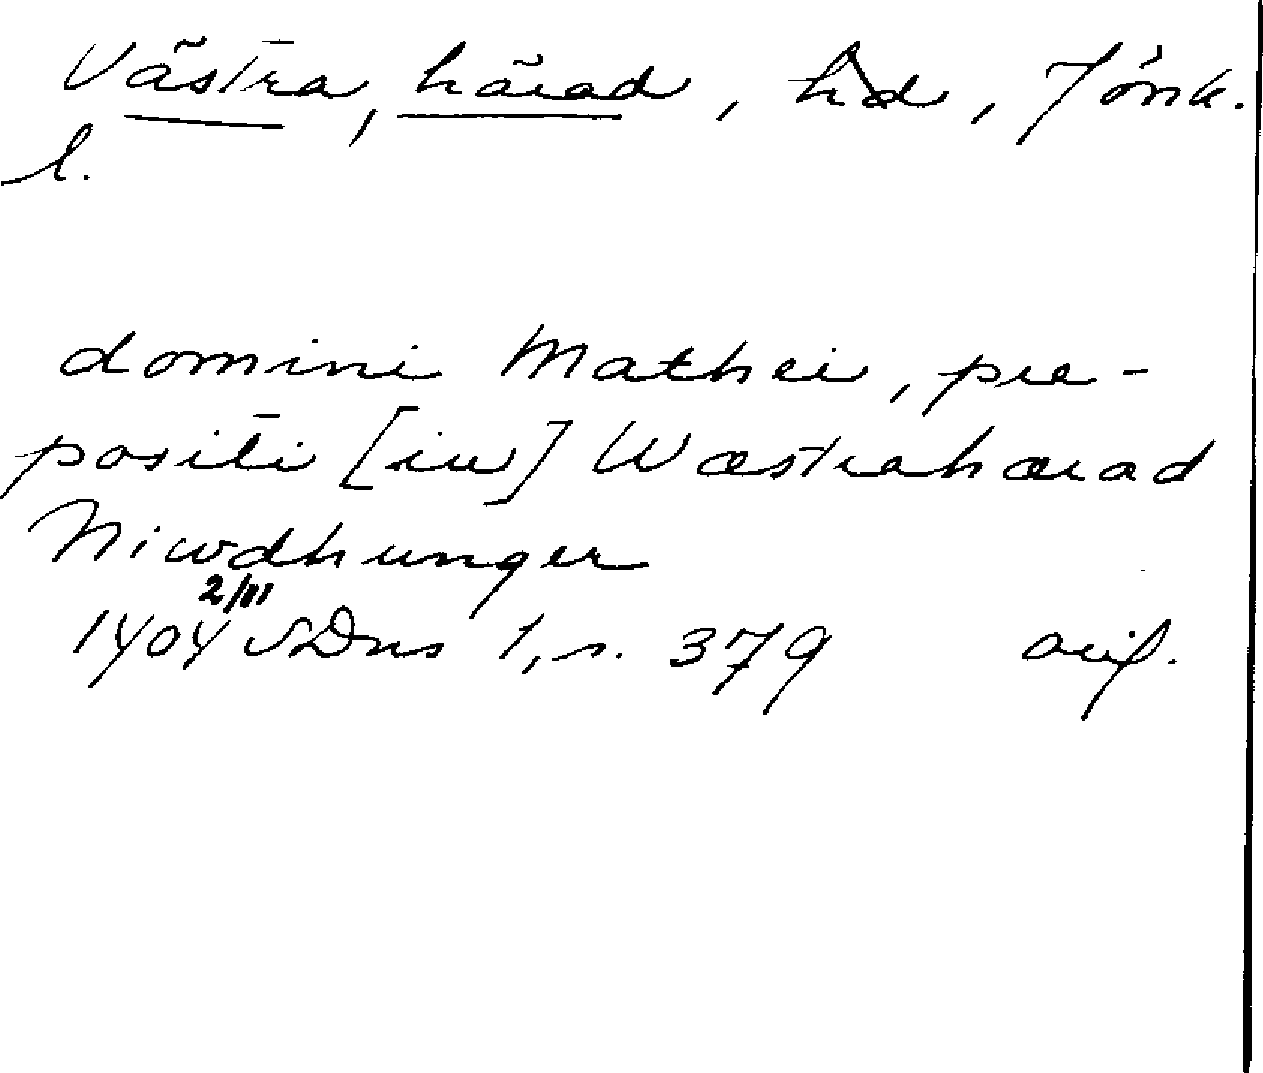 Västra, härad, hd, Jönk.
l.
domini Mathei, pre-
positi [in] Wæstrahærad
Niwdhunger
2/III
1404 SDns 1, s. 379 avs.